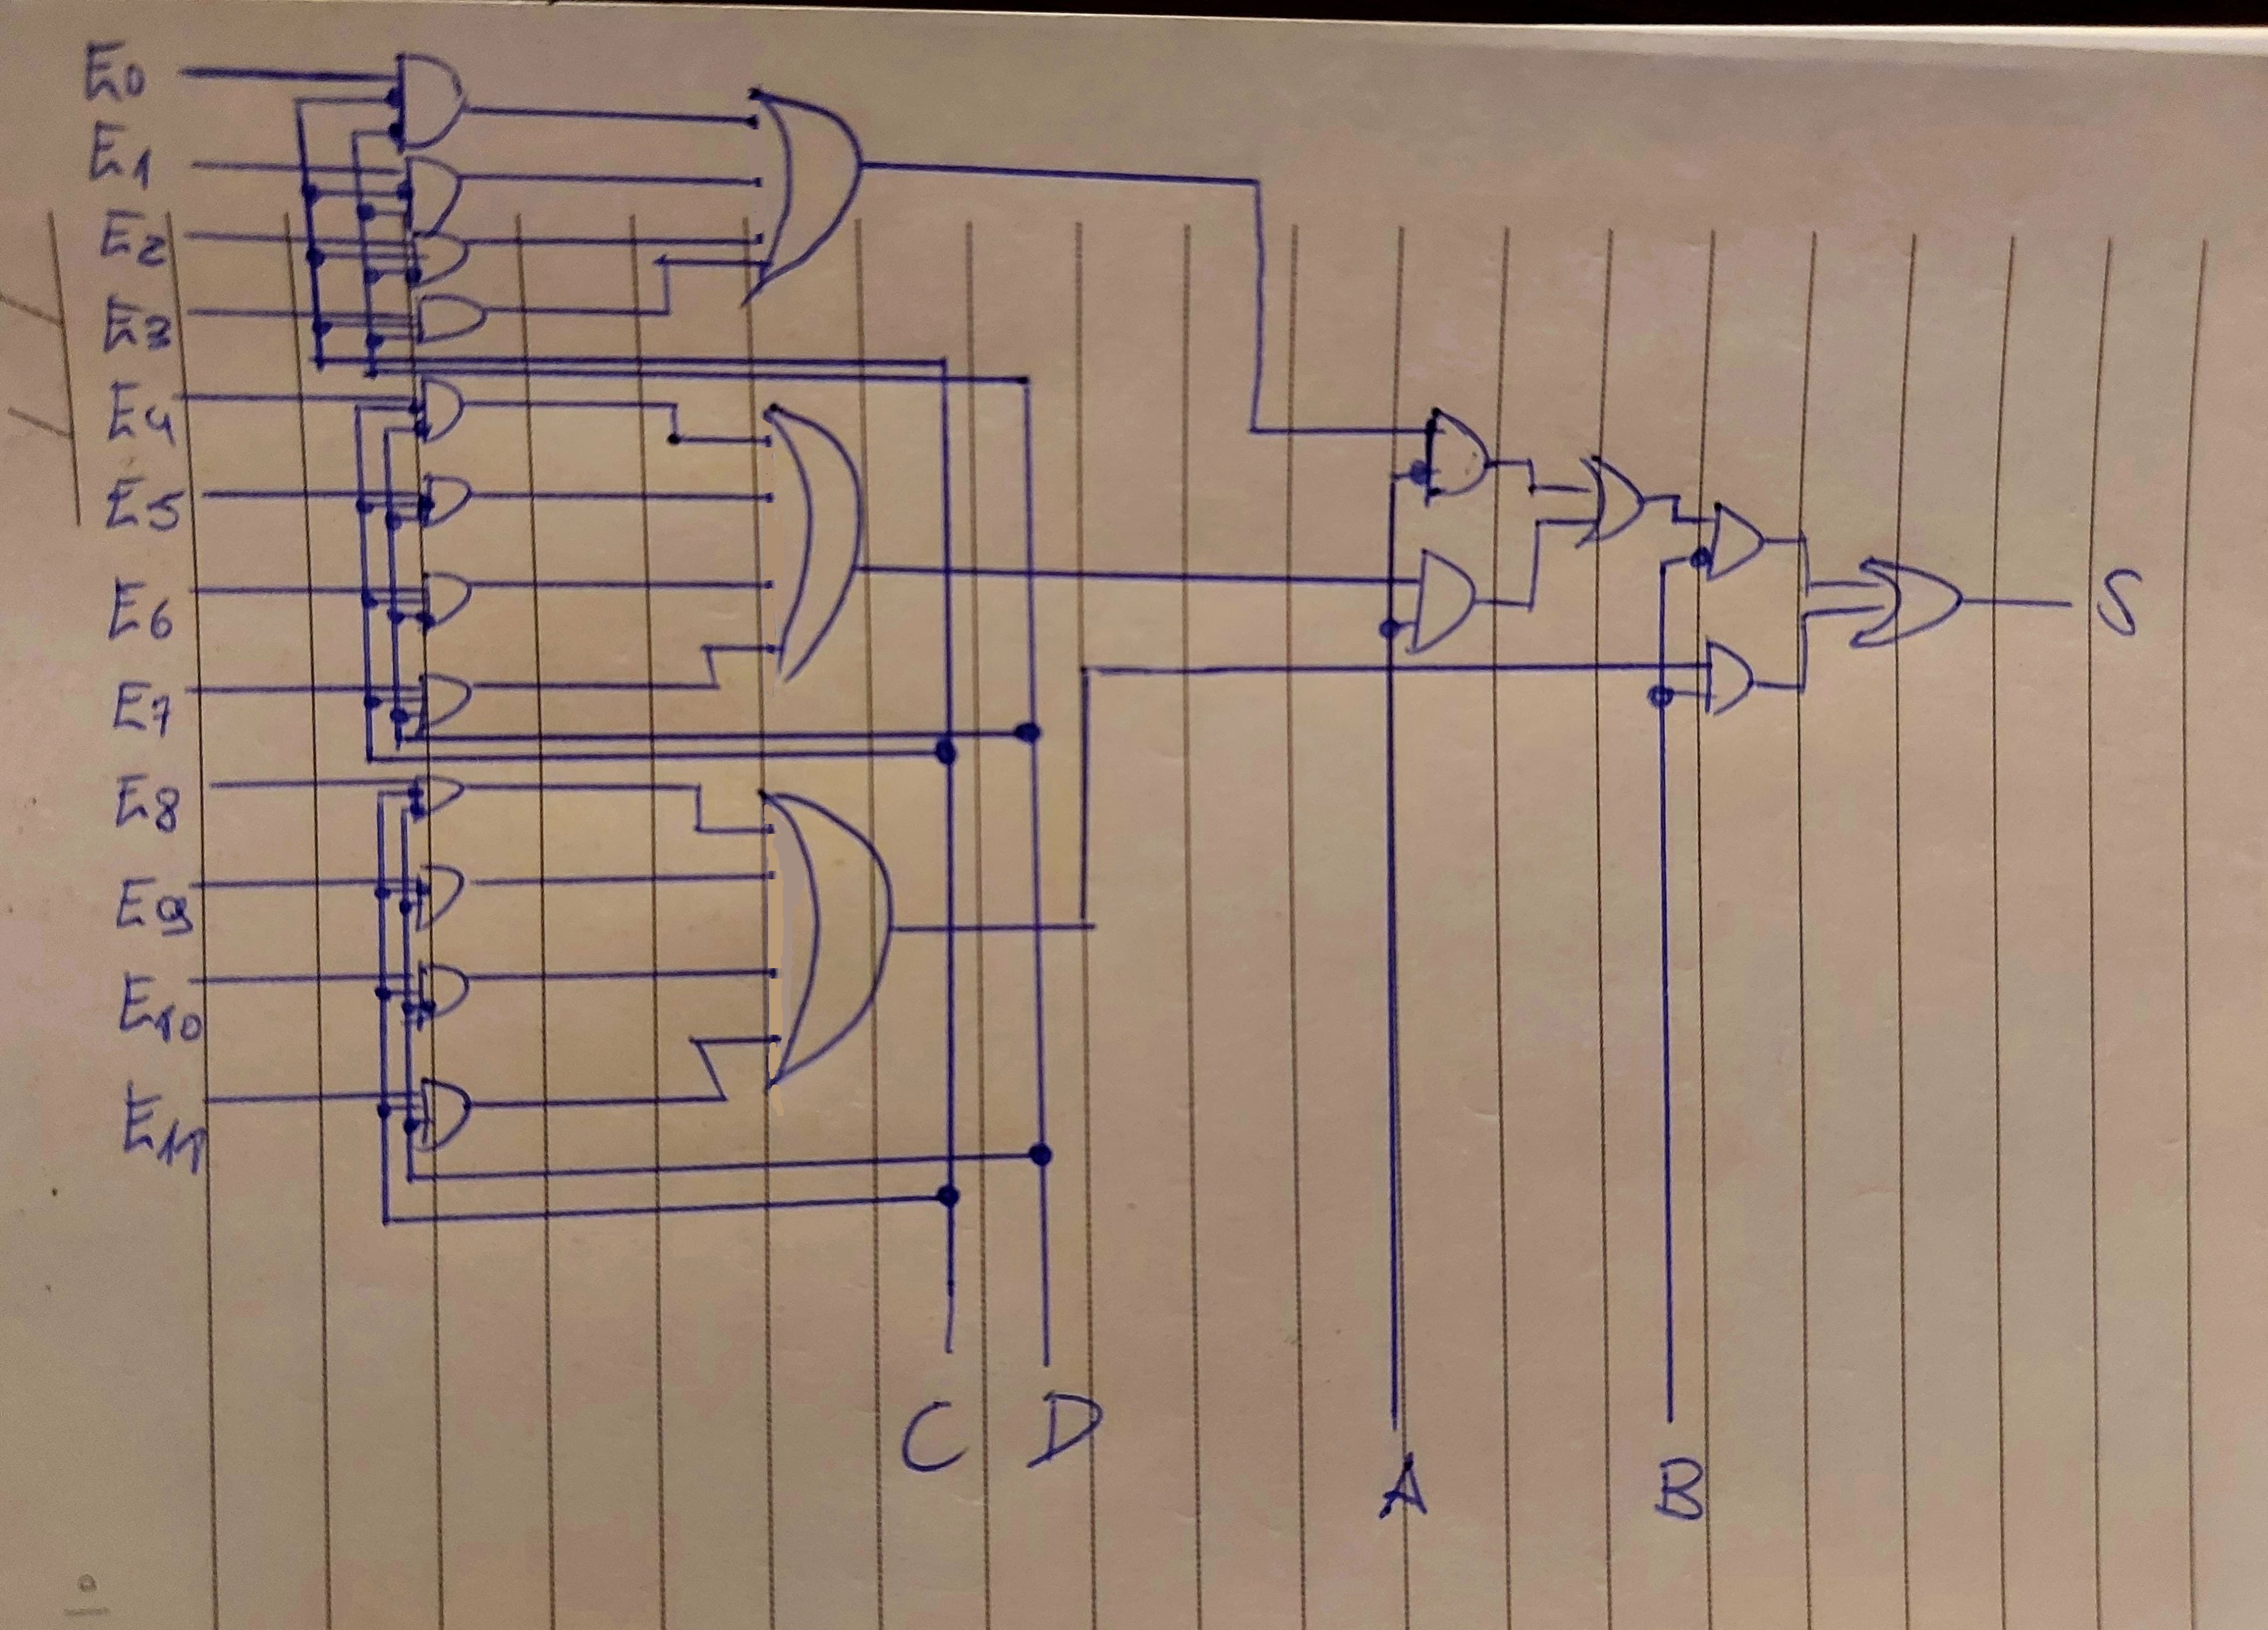 E0
E1
E2
E3
E4
E5
E6
E7
E8
E9
E10
E11
S
C D
A B